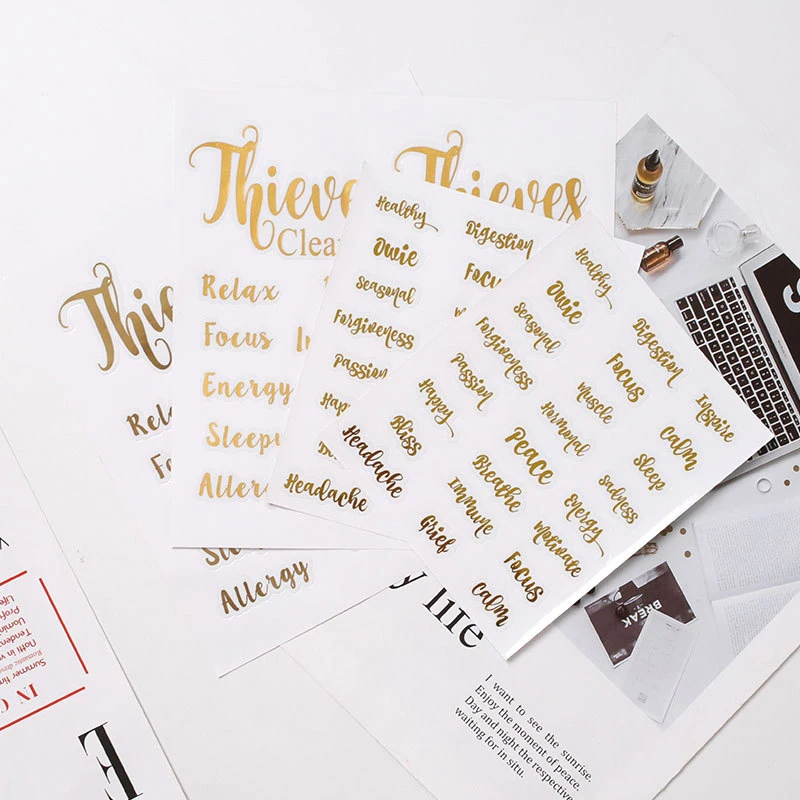 Thieves
Clea
Relax
Focus
Energy
Sleepy
Allerg
Thieves
Thi
Rel
Fo
Allergy
Healthy
Digestion
Owie
Focu
Seasonal
Forgiveness
Passion
Hap
Headache
Healthy
Owie
Digestion
Seasonal
Focus
Inspire
Forgiveness
Muscle
Calm
Passion
Hormonal
Sleep
Happy
Peace
Sadness
Bliss
Breathe
Energy
Headache
Immune
Motivate
Grief
Focus
Calm
y life
I want to see the sunrise.
Enjoy the moment of peace.
Day and night the respective
waiting for in situ.
BREAK
Summer tim
IN C
E